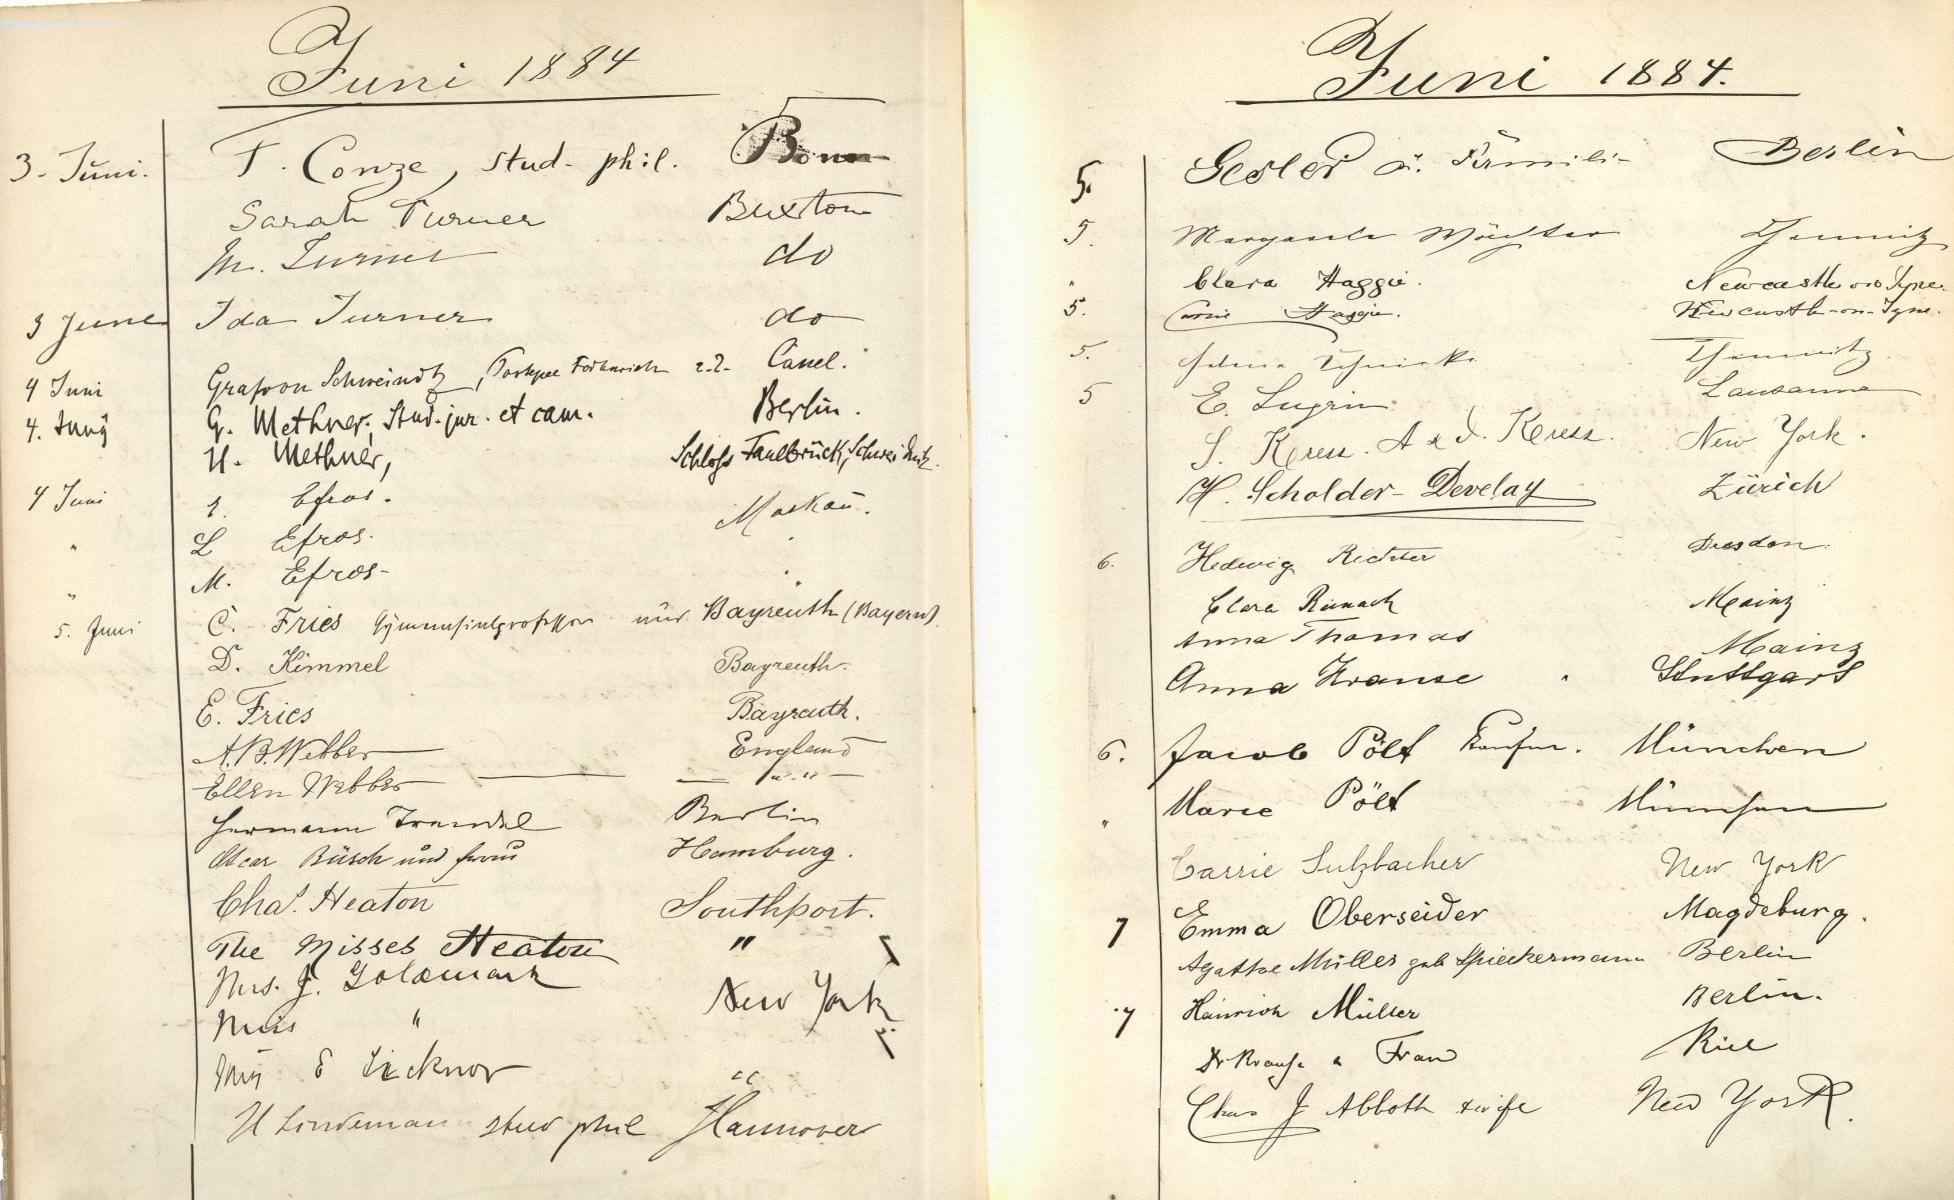 Juni 1884
3. Juni. F. Conze, stud. phil. Bonn
Sarah Turner Buxton
M. Turner do
3 June Ida Turner do
4 Juni Graf von Schweinitz, Portepee Fähnrich Cassel.
4. Juny G. Methner, Stud. jur. et cam. Berlin.
H. Methner, Schloss Faulbrück, Schweidnitz.
4 Juni Efros. Moskau.
" L Efros.
" M. Efros-
5. Juni C. Fries Gymnasialprofessor aus Bayreuth (Bayern)
D. Kimmel Bayreuth.
E. Fries Bayreuth.
A. B. Webber England
Ellen Webber — " —
Hermann Trendel Berlin
Oscar Büsch und Frau Hamburg.
Chas. Heaton Southport.
The Misses Heaton "
Mrs. J. Goldmark New York
Miss "
Miss E Ticknor "
H Lindemann stud phil Hannover
Juni 1884.
5. Gesler u. Familie Berlin
5. Margarete Wächter Chemnitz
" Clara Haggie. Newcastle on Tyne.
5. Carrie Haggie. Newcastle-on-Tyne.
5. Chemnitz.
5 E. Lugrin Lausanne
S. Kress. A & J. Kress. New York.
H. Scholder-Develay Zürich
6. Hedwig Richter Dresden.
Clara Mainz
Anna Thomas Mainz
Anna Krause " Stuttgart
6. Jacob Pölt Kaufm. München
" Marie Pölt München
Carrie Sulzbacher New York
7 Emma Oberseider Magdeburg.
Agathe Müller geb Spieckermann Berlin
7 Heinrich Müller Berlin.
Dr Krause u Frau Kiel
Chas J Abboth & wife New York.